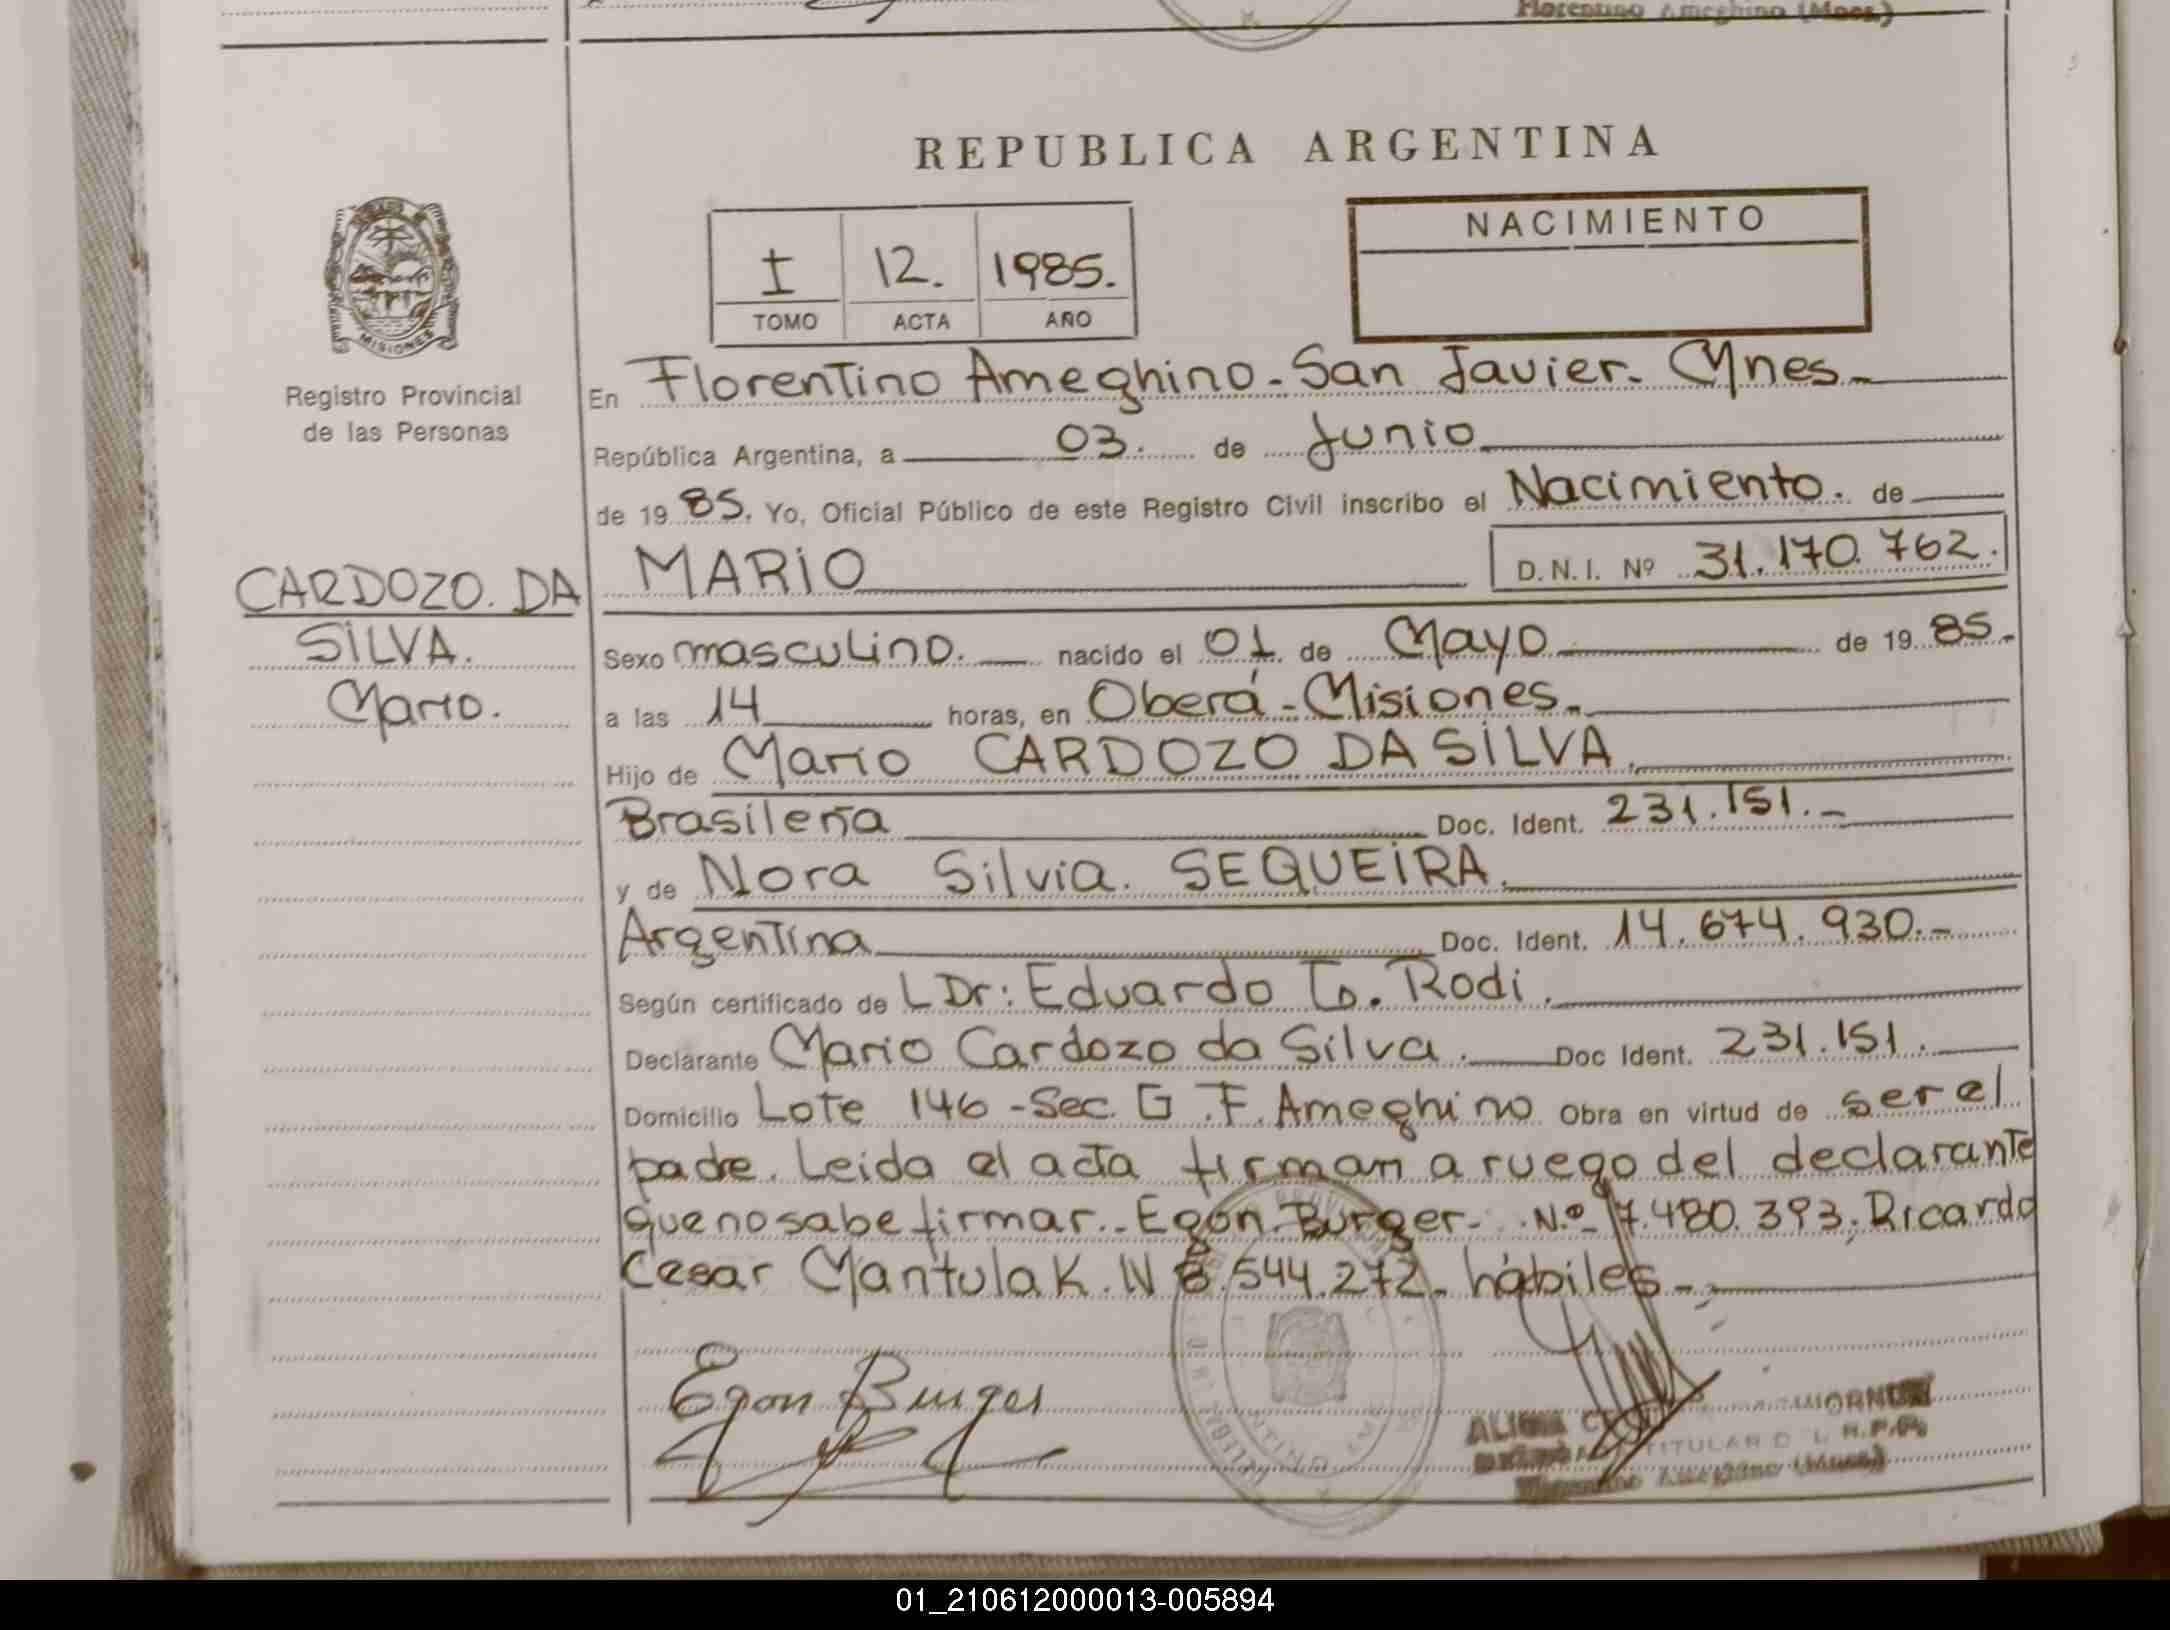 Florentino Ameghino (Mnes.)
REPUBLICA ARGENTINA
MISIONES
Registro Provincial
de las Personas
I 12. 1985.
TOMO ACTA AÑO
NACIMIENTO
En Florentino Ameghino - San Javier - Mnes -
República Argentina, a 03. de Junio
de 19 85. Yo, Oficial Público de este Registro Civil inscribo el Nacimiento. de
MARIO D. N. I. Nº 31.170.762.
CARDOZO. DA
SILVA.
Mario.
Sexo masculino. nacido el 01 de Mayo de 19 85.-
a las 14 horas, en Oberá - Misiones.
Hijo de Mario CARDOZO DA SILVA.
Brasileña Doc. Ident. 231.151.-
y de Nora Silvia. SEQUEIRA.
Argentina Doc. Ident. 14.674.930.-
Según certificado de L Dr: Eduardo G. Rodi.
Declarante Mario Cardozo da Silva. Doc Ident. 231.151.
Domicilio Lote 146 - Sec. G .F. Ameghino Obra en virtud de ser el
padre. Leida el acta firman a ruego del declarante
que no sabe firmar.- Egon Burger- Nº 7.480.393, Ricardo
Cesar Mantulak. N 8.544.272- hábiles-
Egon Burger
TITULAR D L R.P.P.
Ameghino (Mnes)
01_210612000013-005894